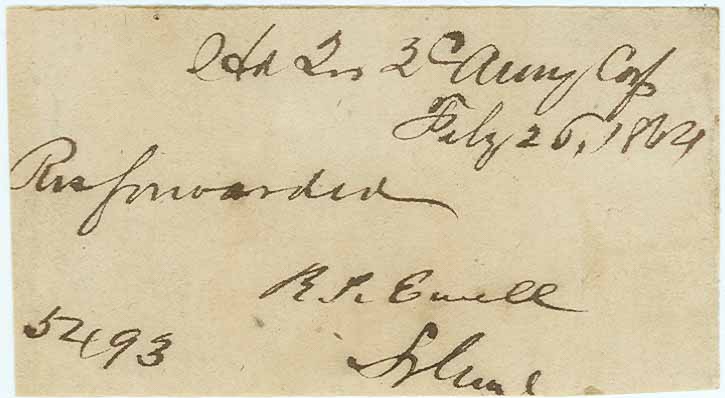 Hd Qrs 2d Army Corps
Feby 26, 1864
Res forwarded
R. S. Ewell
5493
Lt Genl